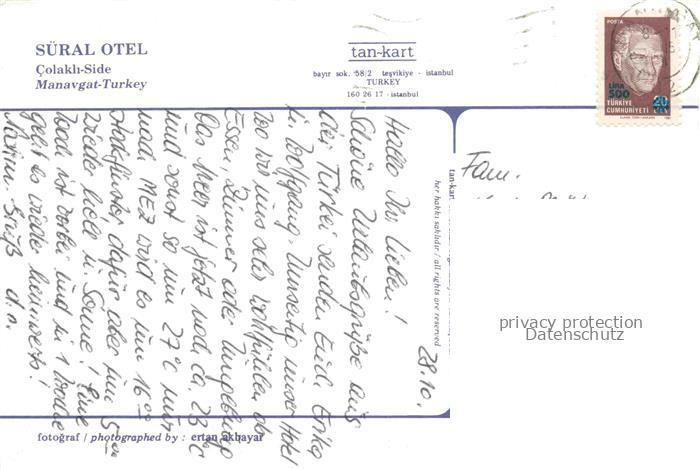 SÜRAL OTEL
Çolaklı-Side
Manavgat-Turkey
tan-kart
bayır sok. 58/2 teşvikiye - istanbul
TURKEY
160 26 17 - istanbul
POSTA
LİRA
500
20
TÜRKİYE
CUMHURİYETİ
28.10.
Hallo Ihr Lieben!
Schöne Urlaubsgrüße aus
der Türkei senden Euch Erika
u. Wolfgang. Umseitig unser Hotel
wo wir uns sehr wohlfühlen, ob
Essen, Zimmer oder Umgebung
Das Meer ist jetzt noch ca. 23°C
und sonst so um 27°C nur
nach MEZ wird es um 16 00
stockfinster, dafür aber um 5 00
wieder hell u. Sonne! Eine
Woche ist vorbei und in 1 Woche
geht es wieder heimwärts!
Gruß d. o.
tan-kart
her hakkı saklıdır / all rights are reserved
Fam.
privacy protection
Datenschutz
fotoğraf / photographed by : ertan akbayar